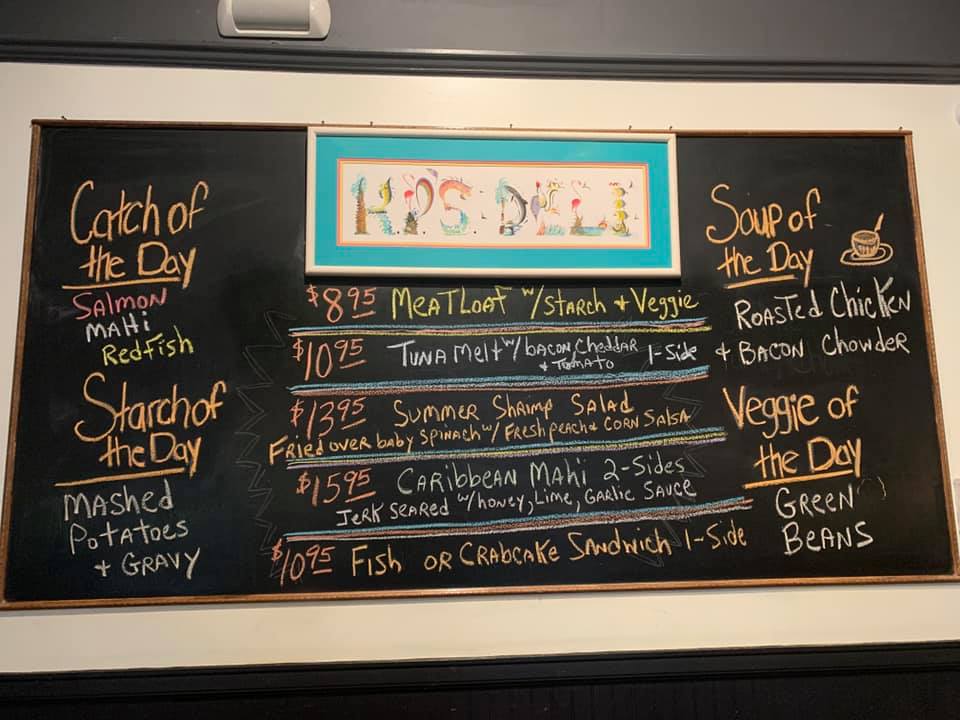 H.P.'S DELI
Catch of
the Day
Salmon
Mahi
Redfish
Starch of
the Day
Mashed
Potatoes
+ Gravy
$8.95 Meatloaf w/ Starch + Veggie
$10.95 Tuna Melt w/ bacon, Cheddar
+ Tomato 1-Side
$13.95 Summer Shrimp Salad
Fried over baby Spinach w/ Fresh peach + Corn Salsa
$15.95 Caribbean Mahi 2-Sides
Jerk Seared w/ honey, Lime, Garlic Sauce
$10.95 Fish or Crabcake Sandwich 1-Side
Soup of
the Day
Roasted Chicken
+ Bacon Chowder
Veggie of
the Day
Green
Beans